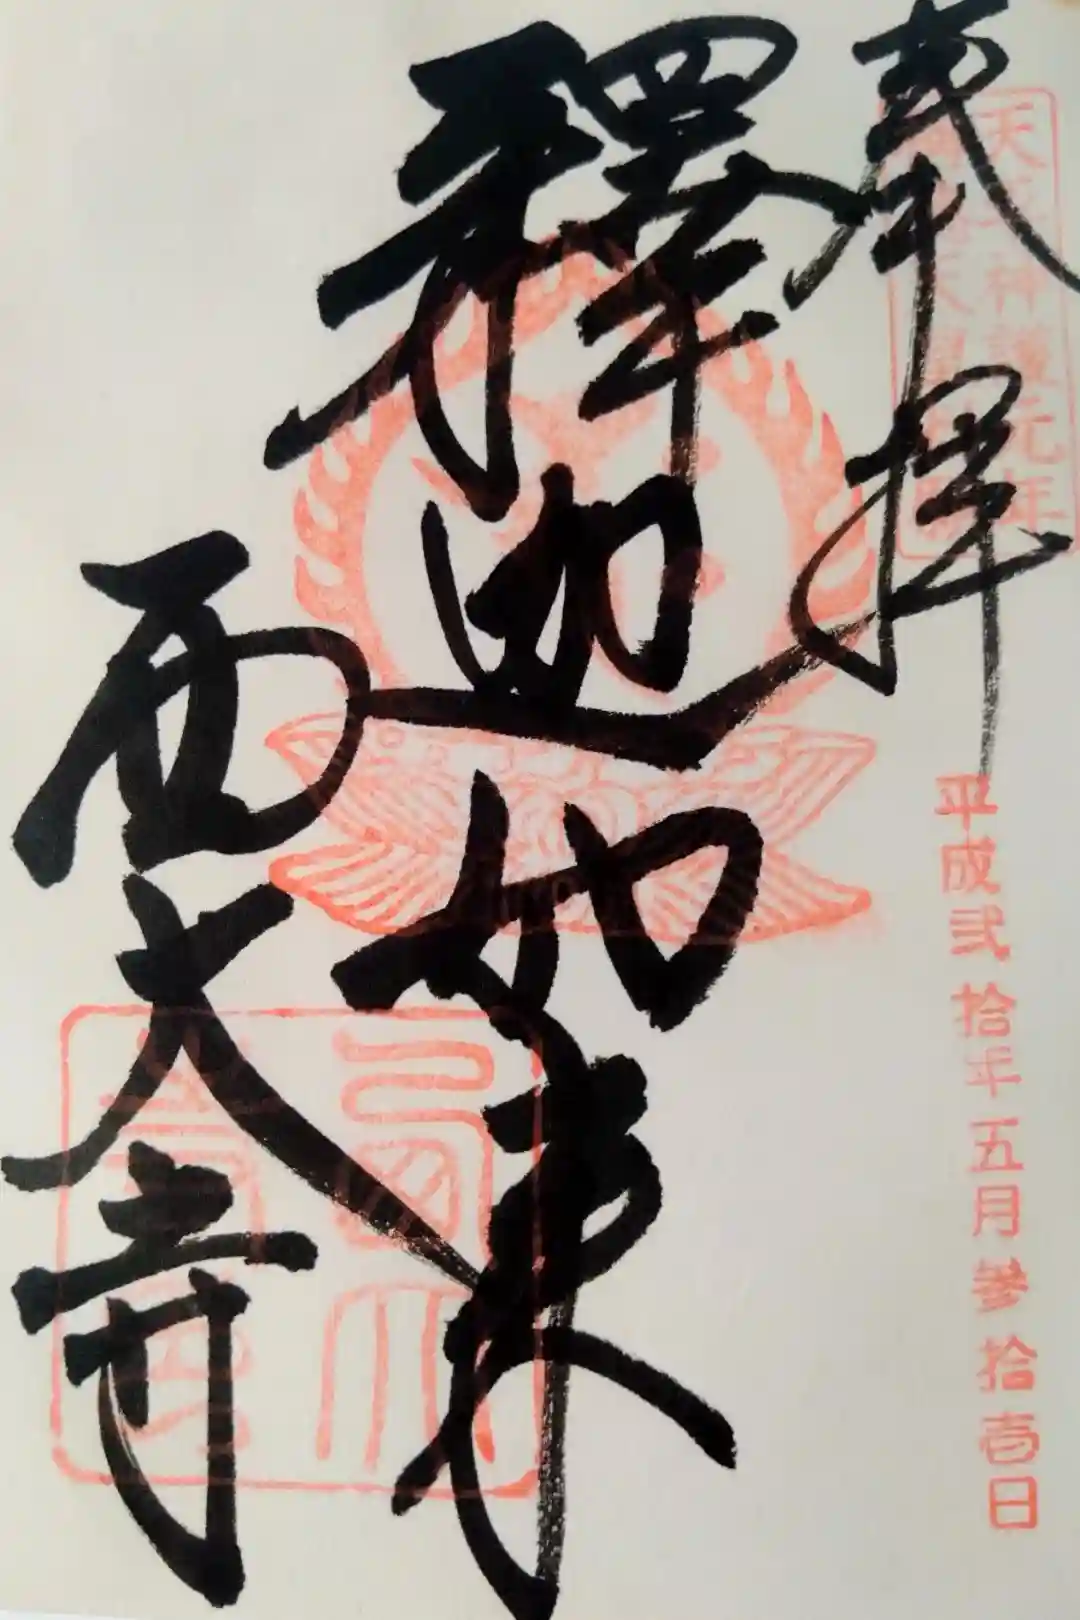 奉拝
天平神護元年
天皇
平成弐拾年五月参拾壱日
釋迦如来
西大寺